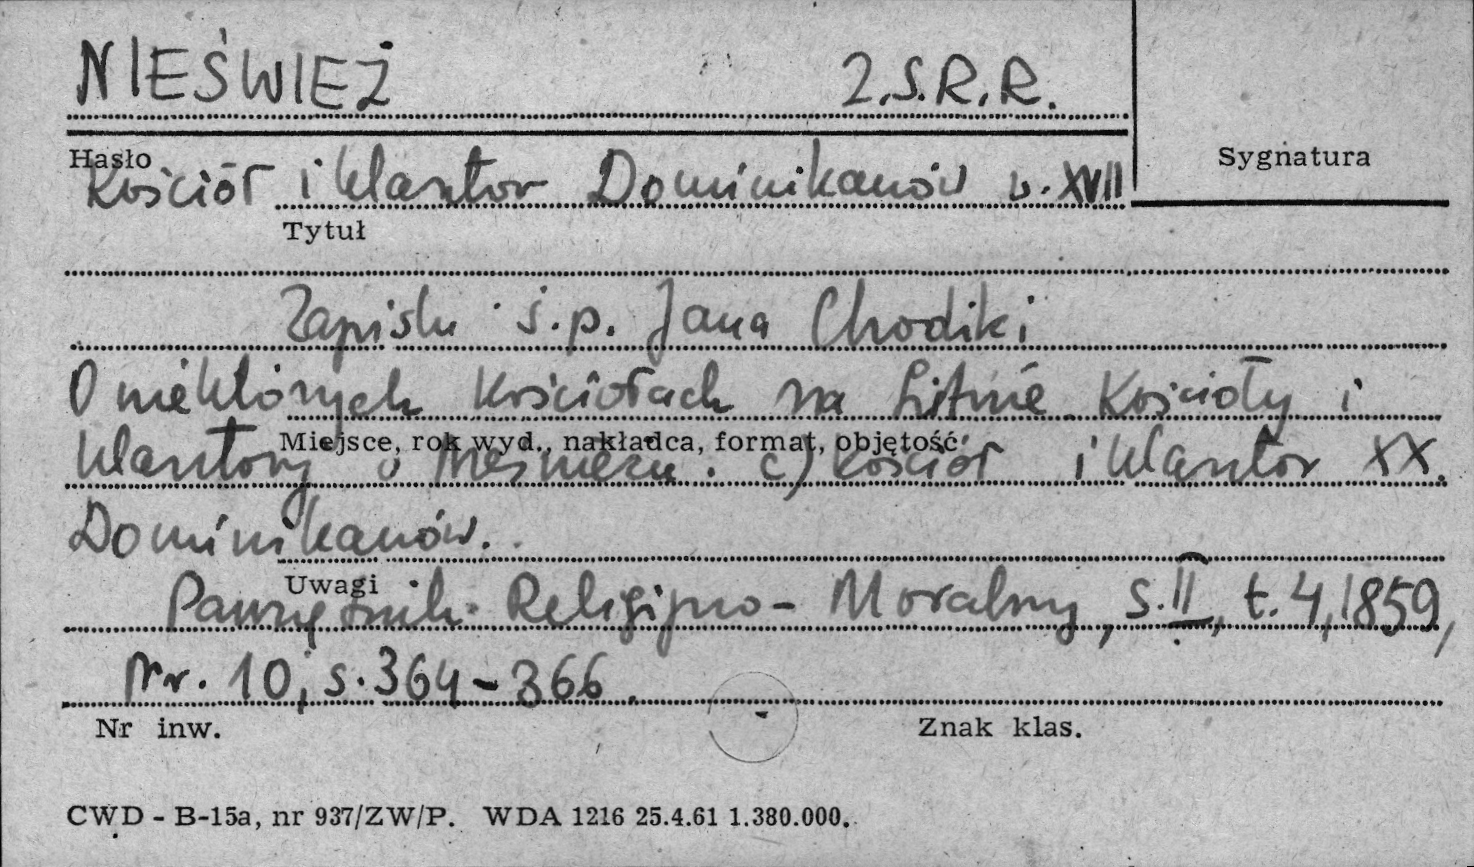 NIEŚWIEŻ Z.S.R.R.
Hasło
Sygnatura
Kościół i klasztor Dominikanów w. XVII
Tytuł
Zapiski ś.p. Jana Chodźki
O niektórych kościołach na Litwie. Kościoły i
Miejsce, rok wyd., nakładca, format, objętość
klasztory w Nieświeżu. c) kościół i klasztor XX.
Dominikanów.
Uwagi
Pamiętnik Religijno-Moralny, s.II, t.4, 1859,
Nr. 10, s.364-366.
Nr inw.
Znak klas.
CWD - B-15a, nr 937/ZW/P. WDA 1216 25.4.61 1.380.000.